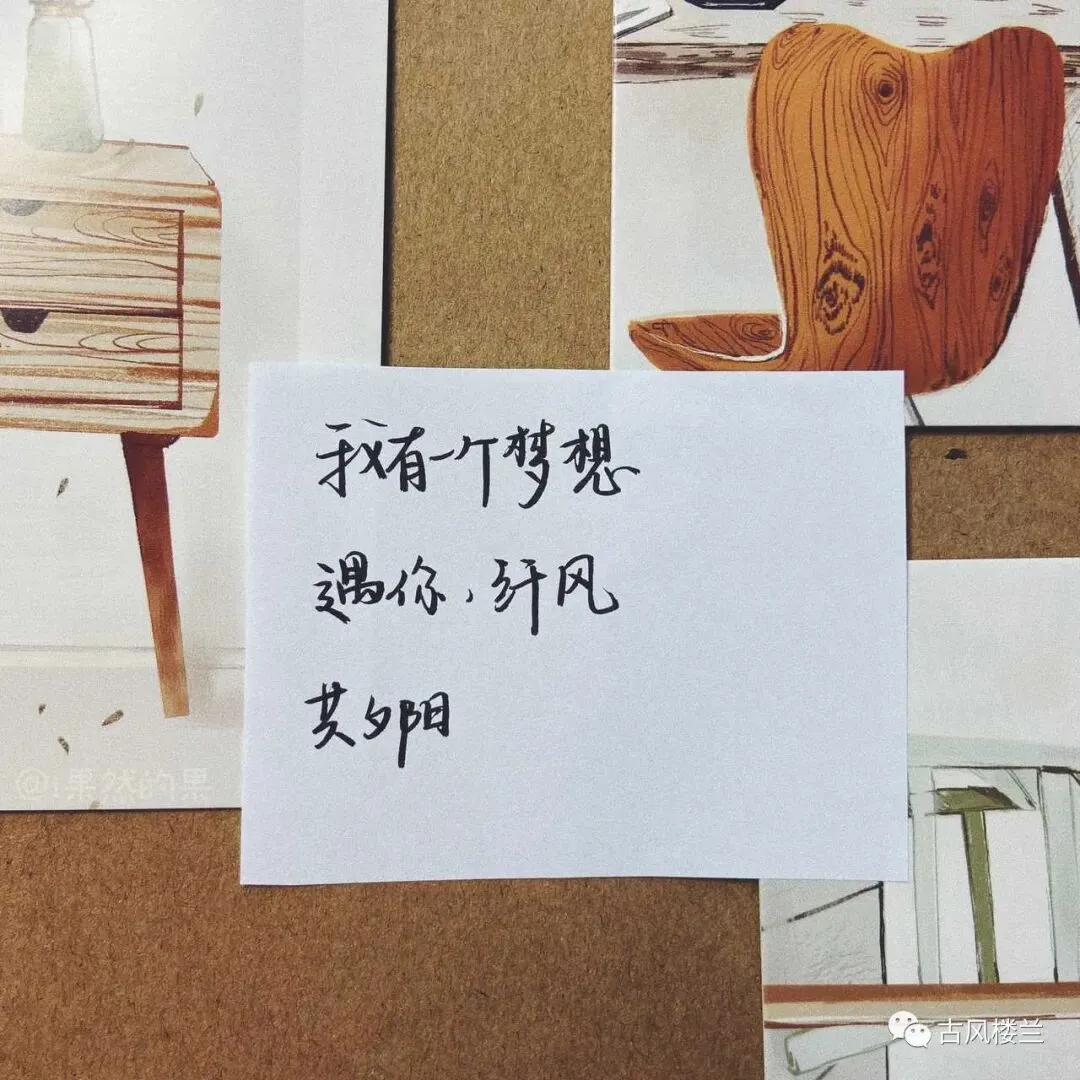 我有一个梦想
遇你，纤风
共夕阳
@i果然的果
古风楼兰